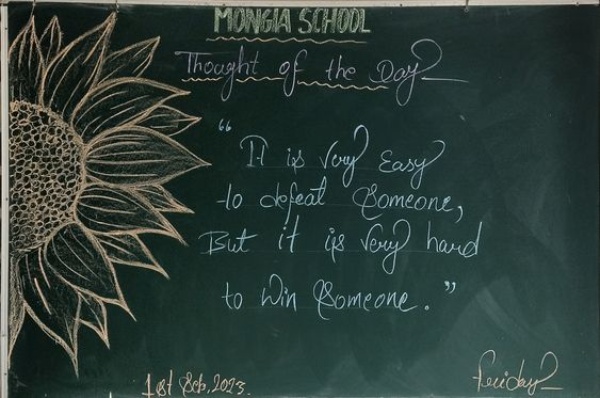 MONGIA SCHOOL
Thought of the Day
“It is Very Easy
to defeat Someone,
But it is Very hard
to Win Someone.”
1st Sep, 2023.
Friday